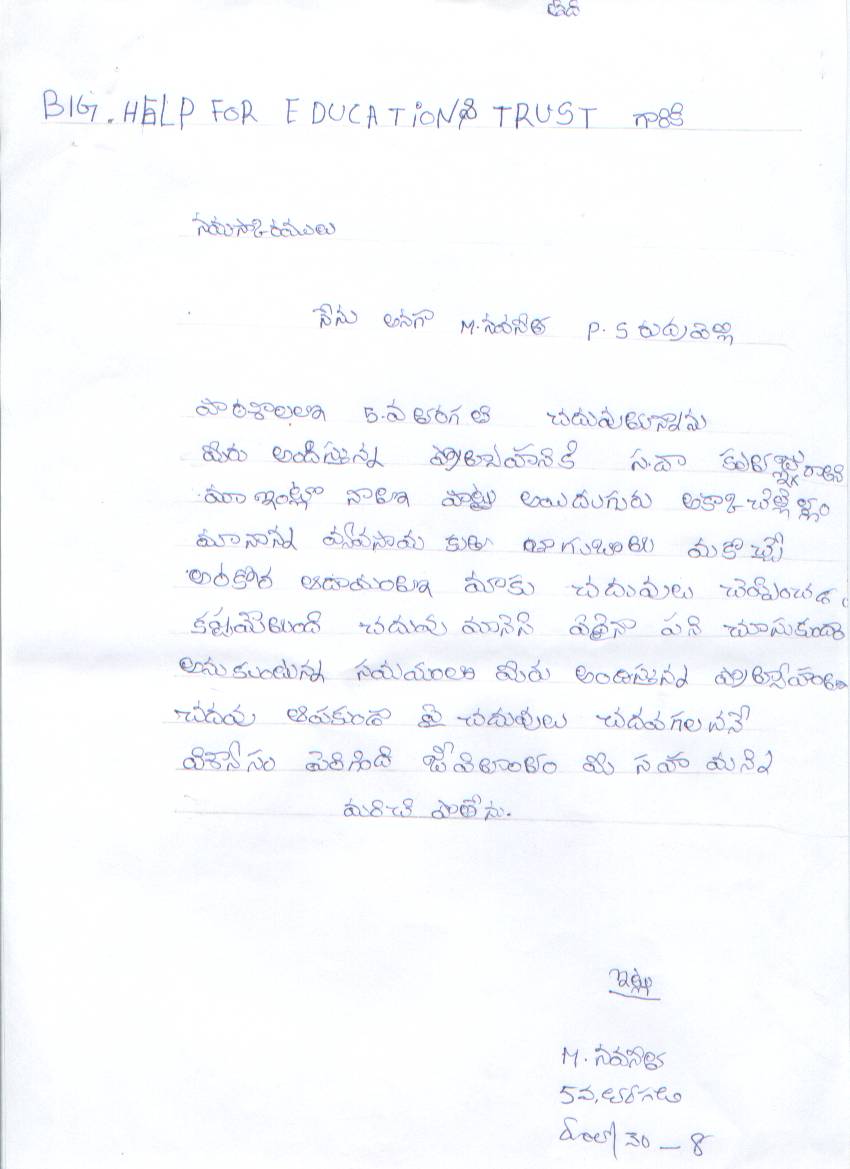 BIG. HELP FOR EDUCATION TRUST గారికి
నమస్కారములు
నేను అనగా M. నవనీత P. S రుద్రవెల్లి
పాఠశాలలో 5.వ తరగతి చదువుతున్నాను
మీరు అందిస్తున్న ప్రోత్సహానికి సదా కృతజ్ఞురాలిని
మా ఇంట్లో నాతో పాటు అయిదుగురు అక్కా చెల్లెళ్లం
మా నాన్న వ్యవసాయ కూలి
అరకొర ఆదాయంతో మాకు చదువులు చెప్పించడం
కష్టమైతుంది చదువు మానేసి ఏదైనా పని చూసుకుందా
అనుకుంటున్న సమయంలో మీరు అందిస్తున్న ప్రోత్సహంతో
చదువు ఆపకుండా పై చదువులు చదవగలననే
విశ్వాసం పెరిగింది జీవితాంతం మీ సహయాన్ని
మరిచి పోలేను.
ఇట్లు
M. నవనీత
5వ, తరగతి
రూల్ నం - 8